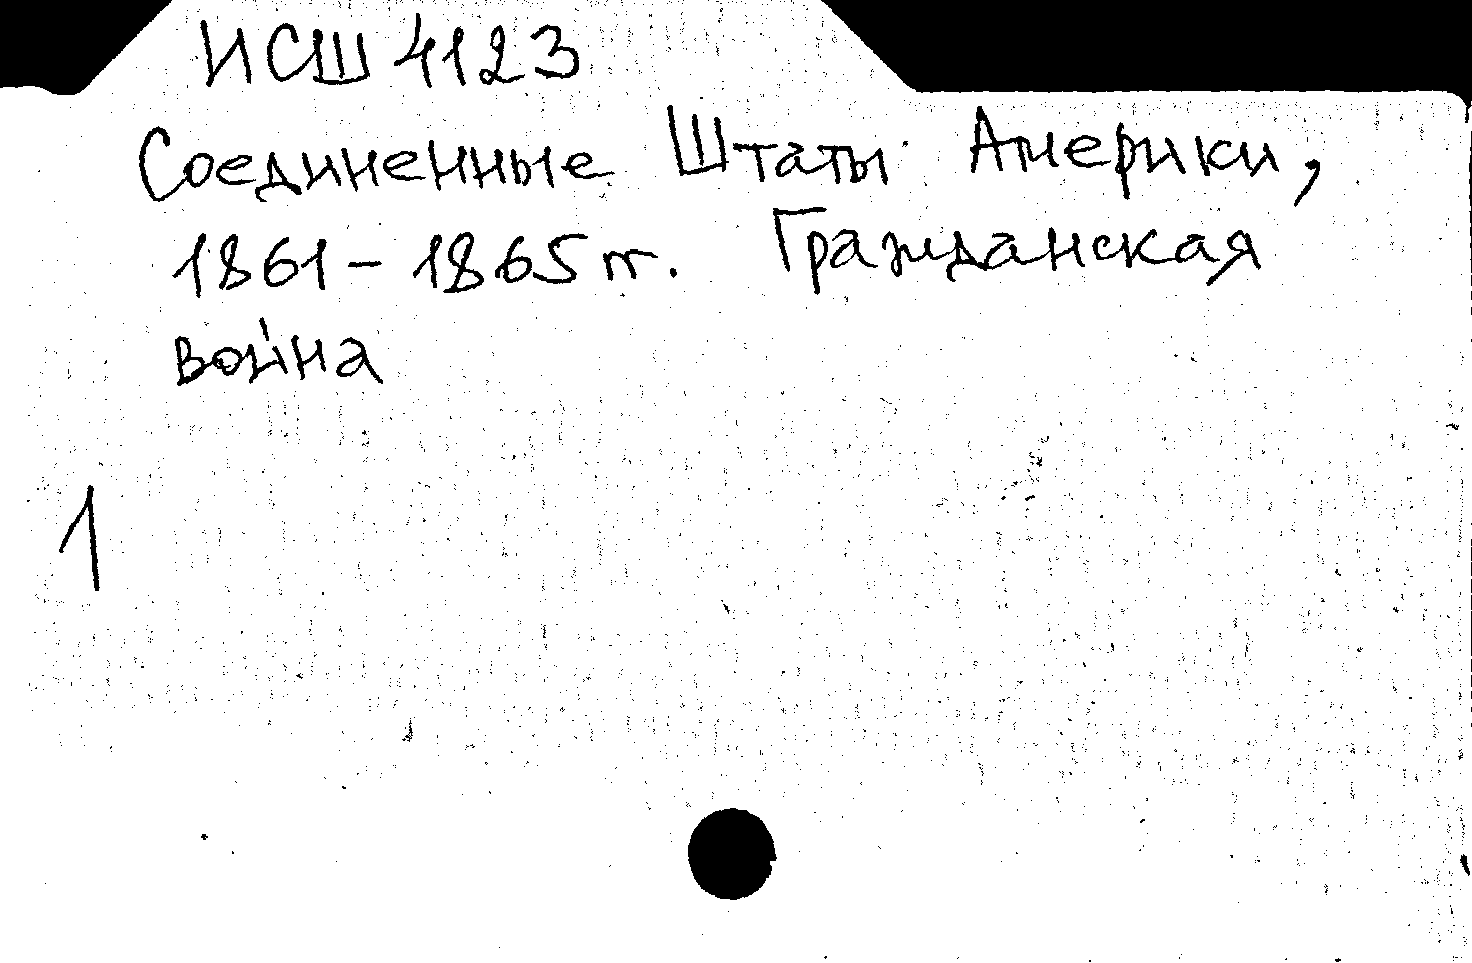 ИСШ 4123
Соединенные Штаты Америки,
1861-1865 гг. Гражданская
война
1